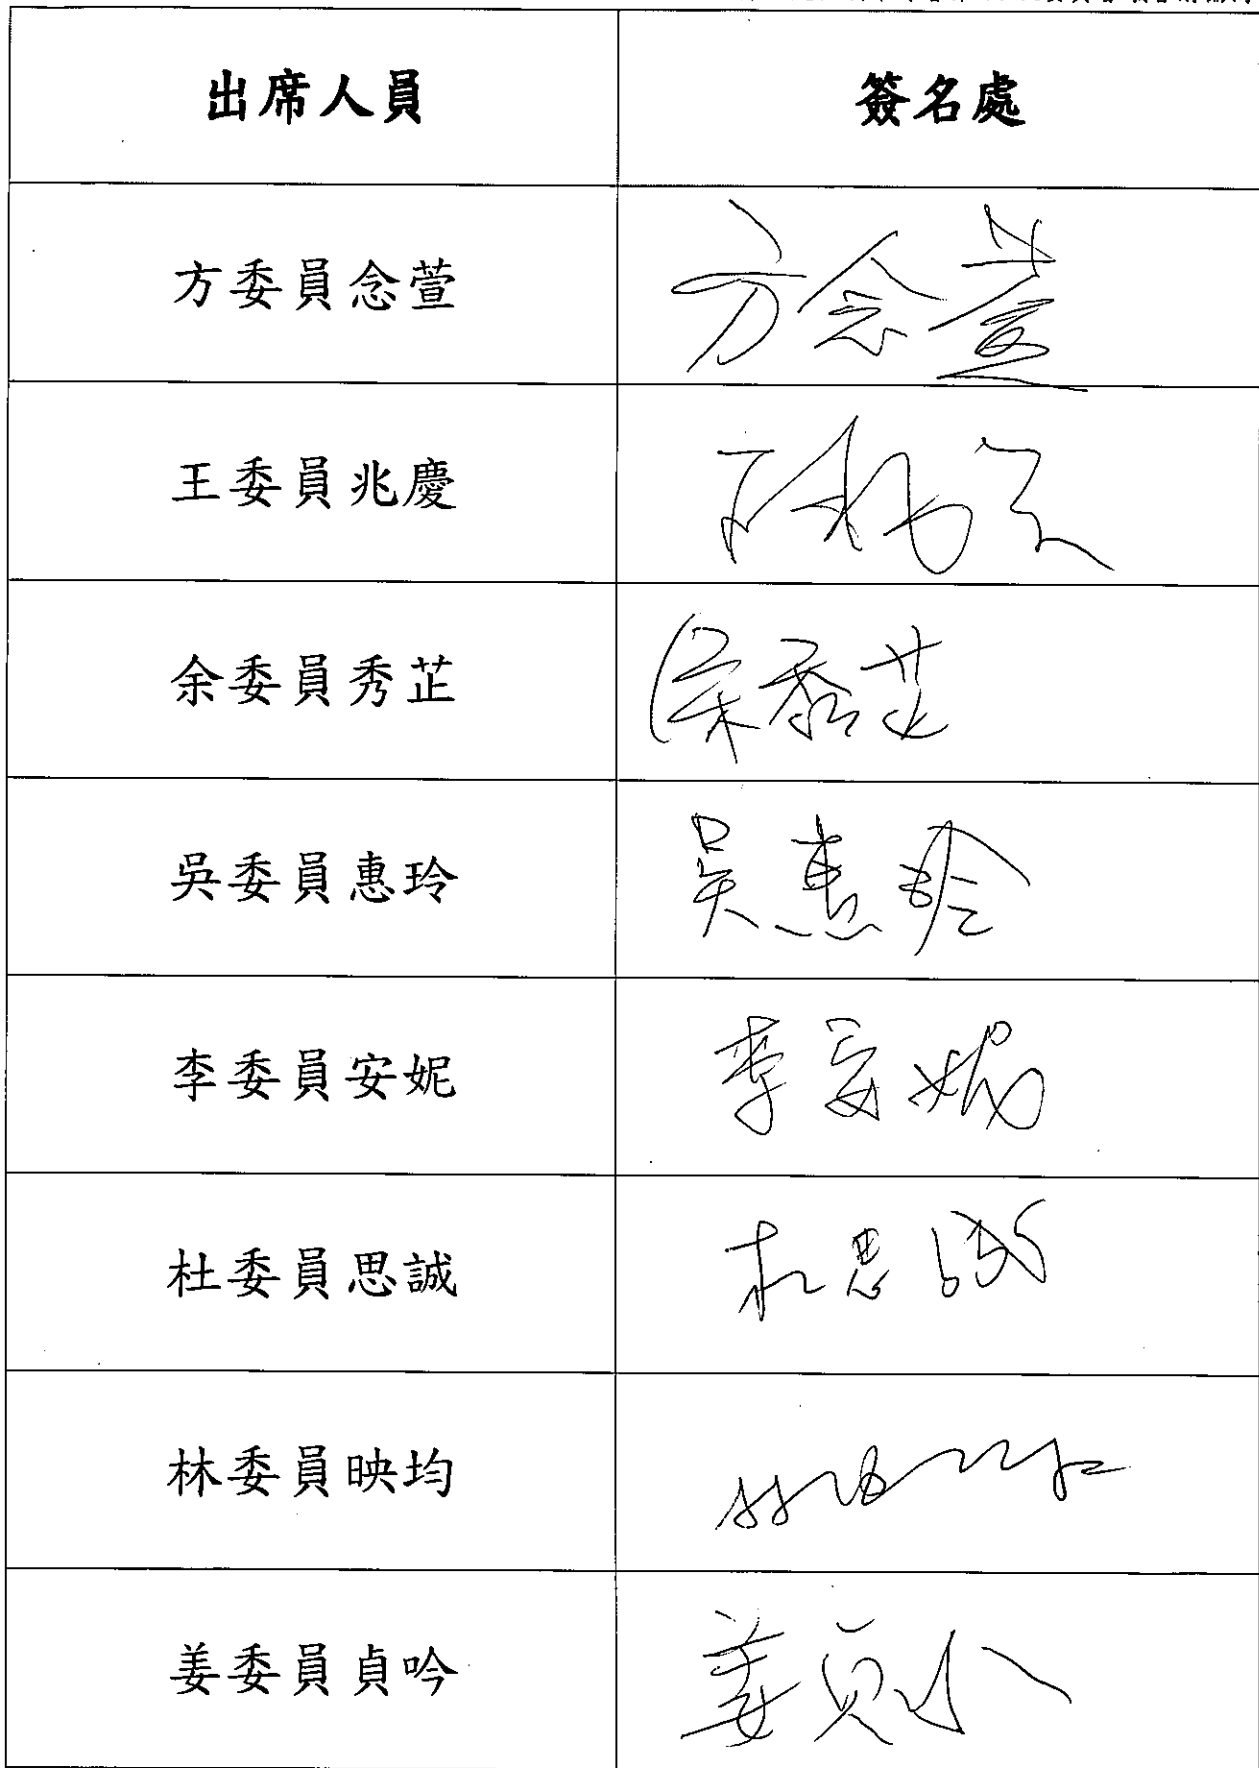 出席人員 簽名處
方委員念萱 方念萱
王委員兆慶
余委員秀芷 余秀芷
吳委員惠玲 吳惠玲
李委員安妮 李安妮
杜委員思誠 杜思誠
林委員映均
姜委員貞吟 姜貞吟